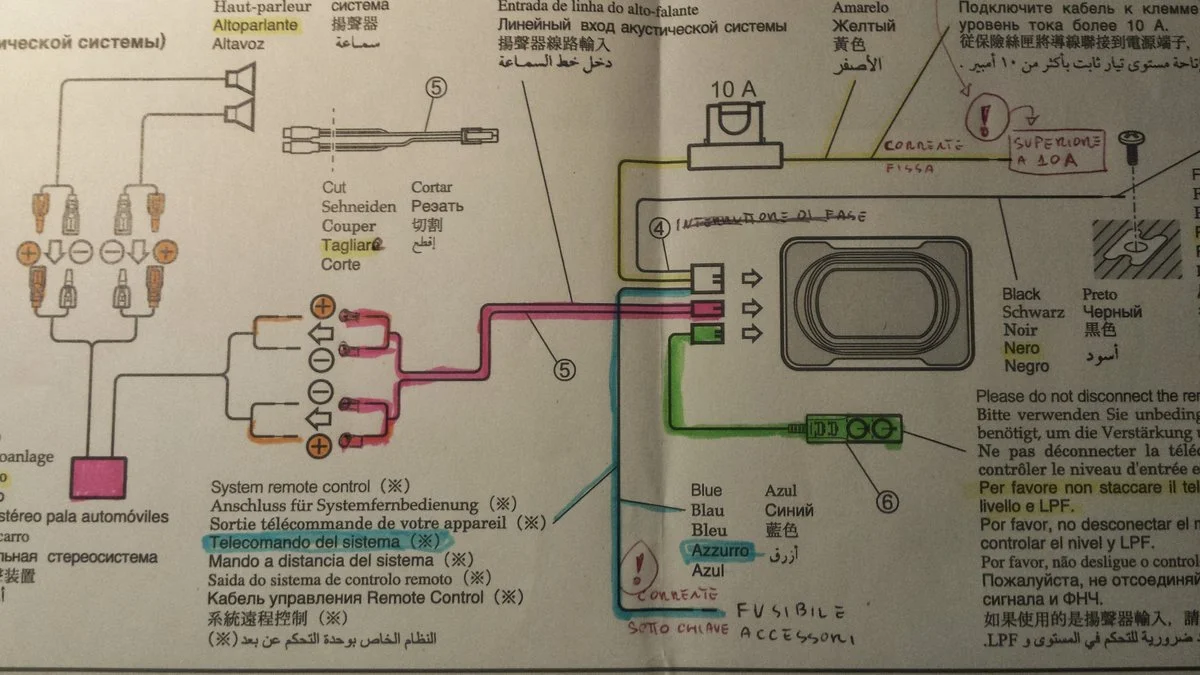 Haut-parleur
Altoparlante
Altavoz
система
揚聲器
سماعة
ической системы)
Entrada de linha do alto-falante
Линейный вход акустической системы
揚聲器線路輸入
دخل خط السماعة
Amarelo
Желтый
黃色
الأصفر
Подключите кабель к клемме
уровень тока более 10 А.
從保險絲匣將導線聯接到電源端子,
إتاحة مستوى تيار ثابت بأكثر من ١٠ أمبير.
10 A
CORRENTE
FISSA
!
SUPERIORE
A 10A
5
Cut
Sehneiden
Couper
Tagliare
Corte
Cortar
Резать
切割
إقطع
4
INTERRUTTORE DI FASE
Black
Schwarz
Noir
Nero
Negro
Preto
Черный
黒色
أسود
5
6
Please do not disconnect the rem
Bitte verwenden Sie unbeding
benötigt, um die Verstärkung u
Ne pas déconnecter la téléc
contrôler le niveau d'entrée e
Per favore non staccare il tel
livello e LPF.
Por favor, no desconectar el m
controlar el nivel y LPF.
Por favor, não desligue o contro
Пожалуйста, не отсоединяй
сигнала и ФНЧ.
如果使用的是揚聲器輸入, 請
ضرورية للتحكم في المستوى و LPF.
oanlage
o
stéreo pala automóviles
carro
льная стереосистема
聲装置
System remote control (※)
Anschluss für Systemfernbedienung (※)
Sortie télécommande de votre appareil (※)
Telecomando del sistema (※)
Mando a distancia del sistema (※)
Saida do sistema de controlo remoto (※)
Кабель управления Remote Control (※)
系統遠程控制 (※)
النظام الخاص بوحدة التحكم عن بعد (※)
Blue
Blau
Bleu
Azzurro
Azul
Azul
Синий
藍色
أزرق
!
CORRENTE
SOTTO CHIAVE
FUSIBILE
ACCESSORI